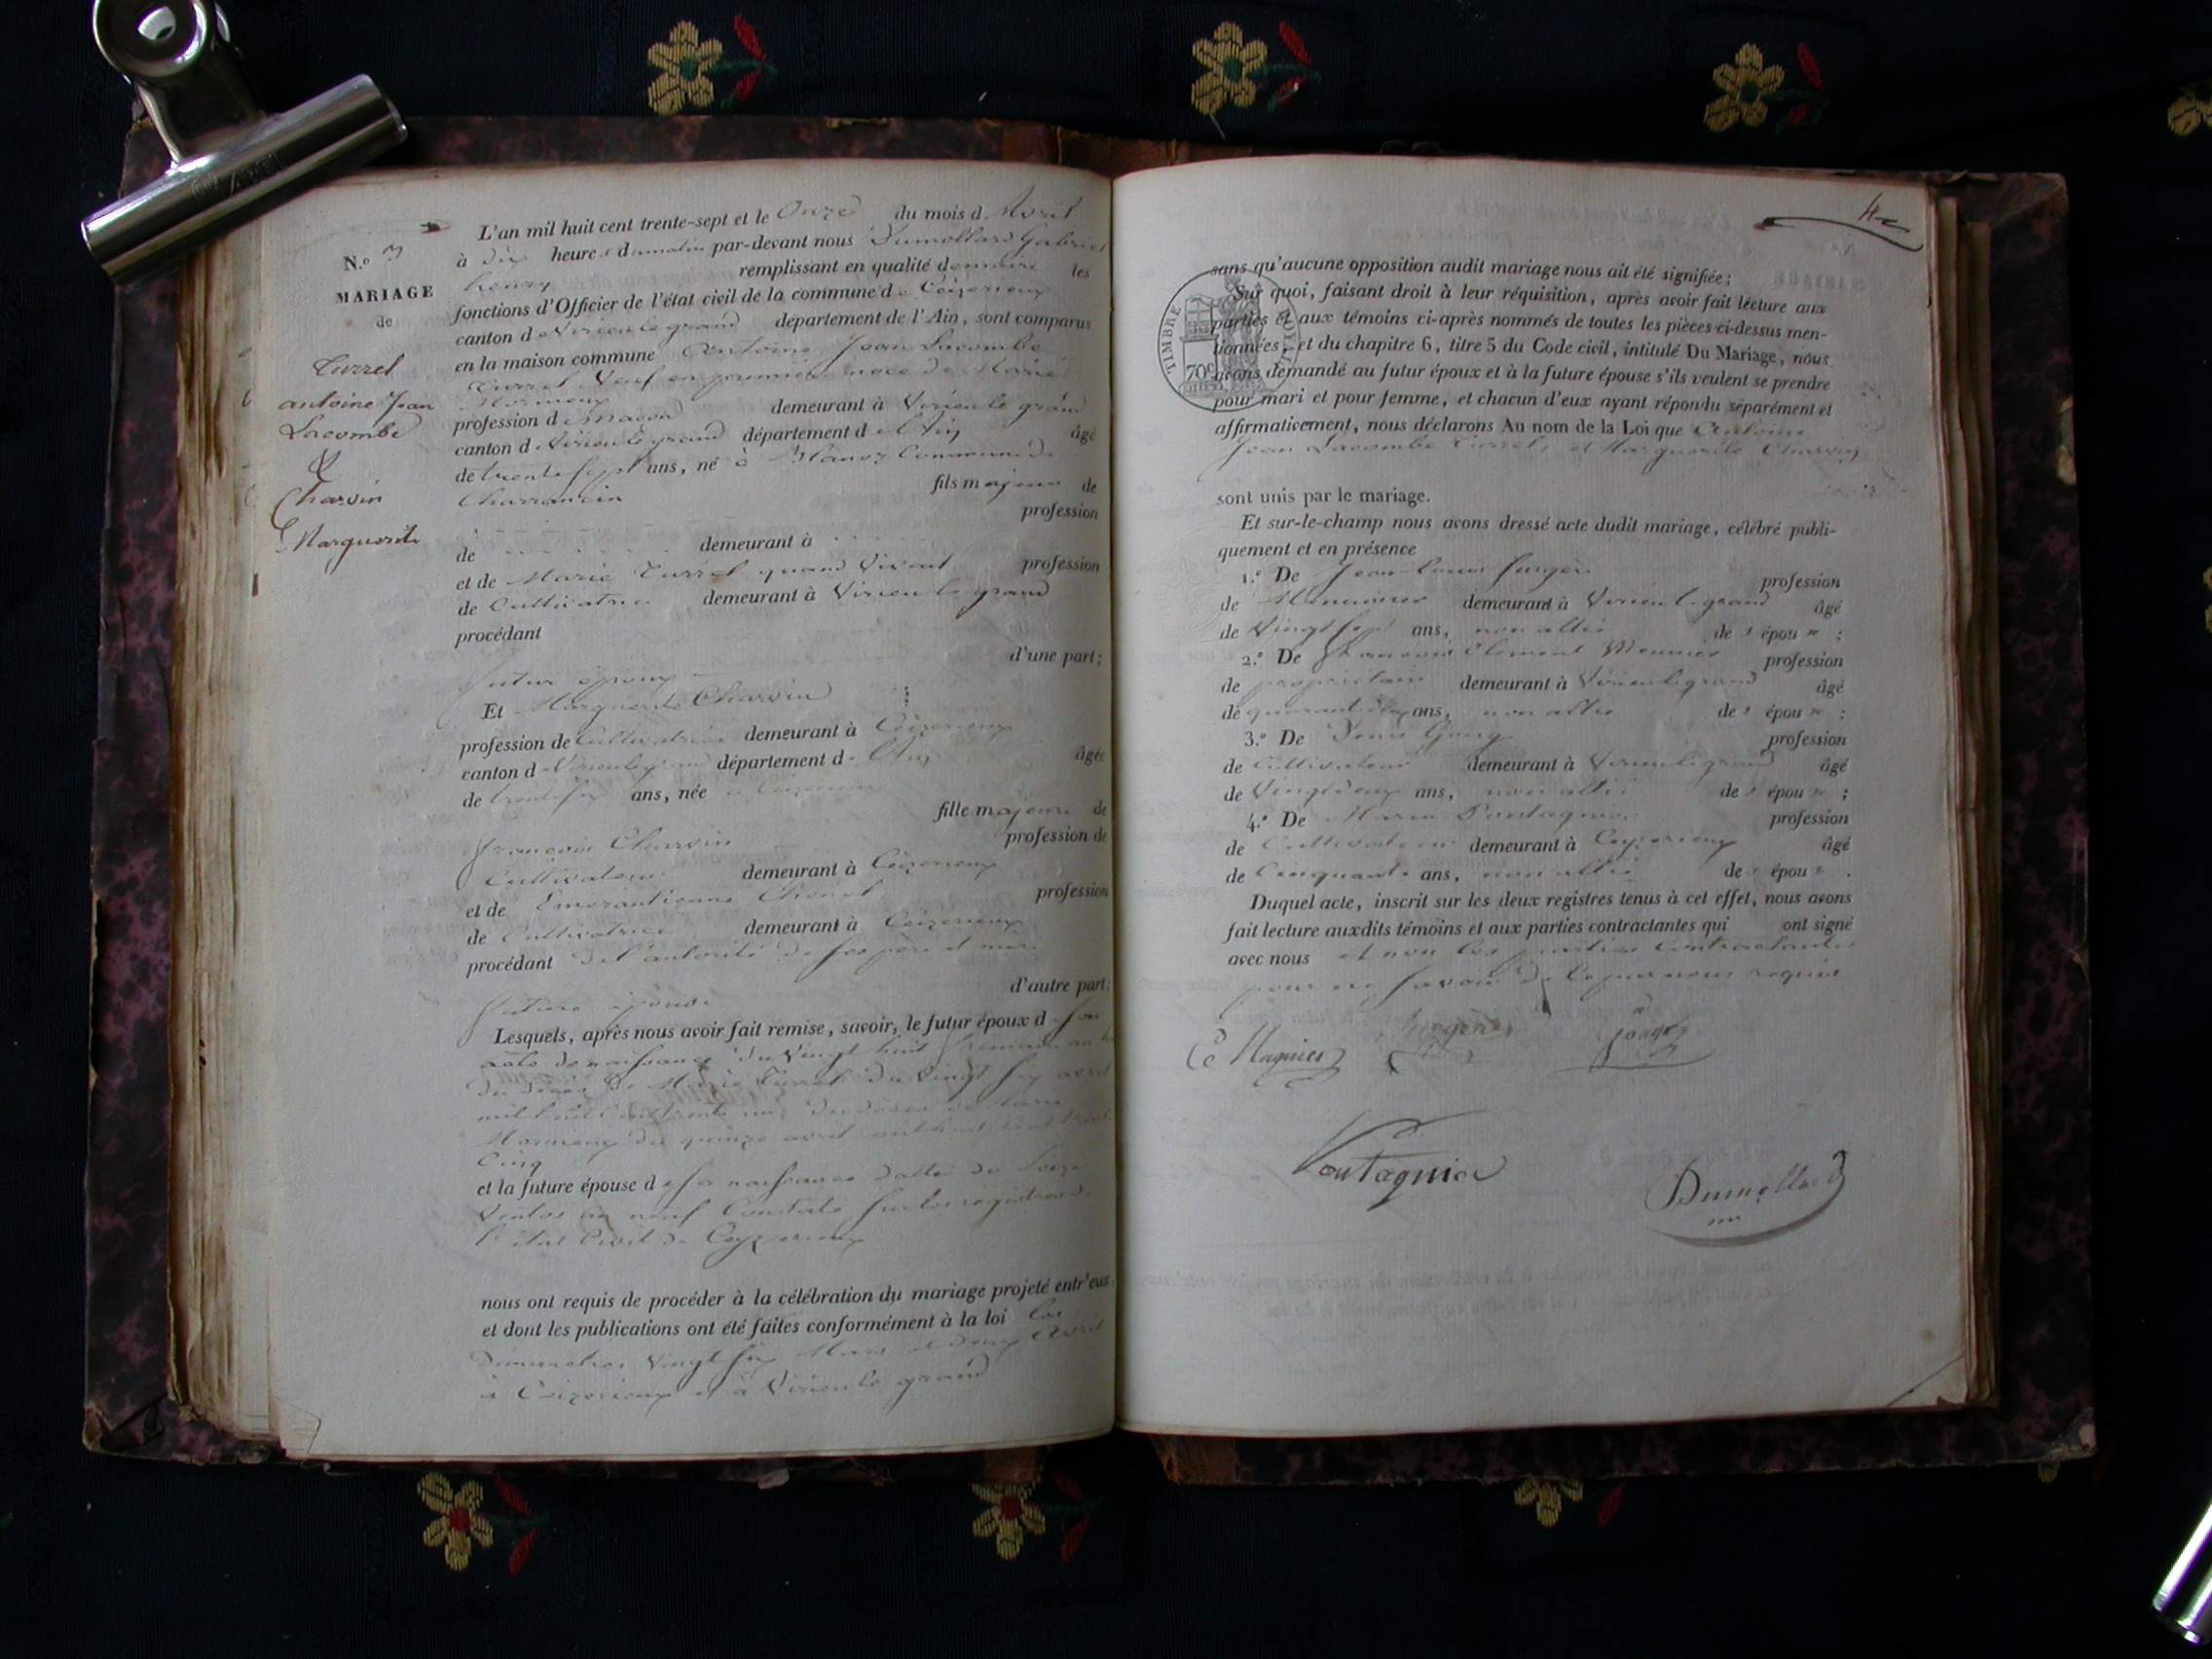 N.o 3
MARIAGE
de
Turrel
antoine Jean
Lacombe
&
Charvin
Marguerite
L'an mil huit cent trente-sept et le Onze du mois d'Avril
à dix heures du matin par-devant nous Dumollard Gabriel
henry remplissant en qualité de maire les
fonctions d'Officier de l'état civil de la commune de Ceizerieux
canton de Virieu le grand département de l'Ain, sont comparus
en la maison commune Antoine Jean Lacombe
Turrel Veuf en premiere noce de Marie
profession de Maçon demeurant à Virieu le grand
canton de Virieu le grand département de l'Ain âgé
de trente sept ans, né à Commune de
Charrancin fils majeur de
profession
de demeurant à
et de Marie Turrel quand Vivait profession
de Cultivatrice demeurant à Virieu le grand
procédant
d'une part;
futur époux
Et Marguerite Charvin
profession de Cultivatrice demeurant à Ceizerieux
canton de Virieu le grand département de l'Ain âgée
de trente six ans, née à Ceizerieux
fille majeure de
françois Charvin profession de
Cultivateur demeurant à Ceizerieux
et de profession
de Cultivatrice demeurant à Ceizerieux
procédant de l'autorité de ses père et mère
d'autre part;
future épouse
Lesquels, après nous avoir fait remise, savoir, le futur époux de son
acte de naissance du Vingt huit
du décès de Marie Turrel du Vingt six avril
mil huit cent trente un, du décès de
du quinze avril mil huit cent trente
Cinq
et la future épouse de sa naissance datée du Seize
Ventos an neuf Constaté sur les registres de
l'état Civil de Ceyzerieux
nous ont requis de procéder à la célébration du mariage projeté entr'eux
et dont les publications ont été faites conformément à la loi les
dimanches Vingt six Mars et deux Avril
à Ceizerieux et à Virieu le grand
TIMBRE ROYAL
70c
sans qu'aucune opposition audit mariage nous ait été signifiée;
Sur quoi, faisant droit à leur réquisition, après avoir fait lecture aux
parties et aux témoins ci-après nommés de toutes les pièces ci-dessus men-
tionnées, et du chapitre 6, titre 5 du Code civil, intitulé Du Mariage, nous
avons demandé au futur époux et à la future épouse s'ils veulent se prendre
pour mari et pour femme, et chacun d'eux ayant répondu séparément et
affirmativement, nous déclarons Au nom de la Loi que Antoine
Jean Lacombe Turrel, et Marguerite Charvin
sont unis par le mariage.
Et sur-le-champ nous avons dressé acte dudit mariage, célébré publi-
quement et en présence
1.o De Jean Louis profession
de Menuisier demeurant à Virieu le grand âgé
de Vingt sept ans, non allié des époux;
2.o De françois Clément profession
de propriétaire demeurant à Virieu le grand âgé
de quarante ans, non allié des époux;
3.o De Denis profession
de Cultivateur demeurant à Virieu le grand âgé
de Vingt deux ans, non allié des époux;
4.o De profession
de Cultivateur demeurant à Ceyzerieux âgé
de Cinquante ans, non allié des époux.
Duquel acte, inscrit sur les deux registres tenus à cet effet, nous avons
fait lecture auxdits témoins et aux parties contractantes qui ont signé
avec nous et non les parties contractantes
pour ne savoir de ce par nous requis
Dumollard